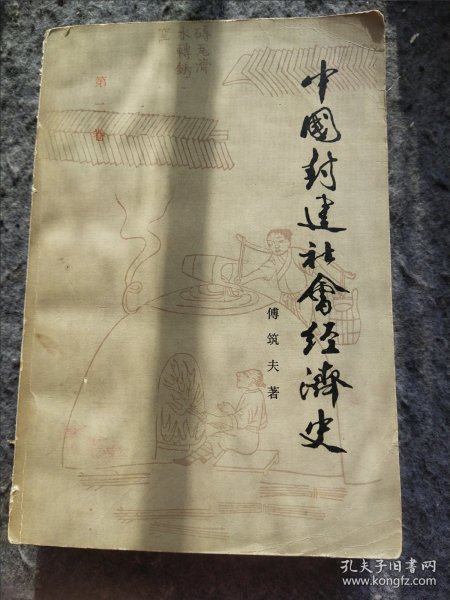 中國封建社會经濟史
傅筑夫著
第一卷
孔夫子旧书网
www.kongfz.com